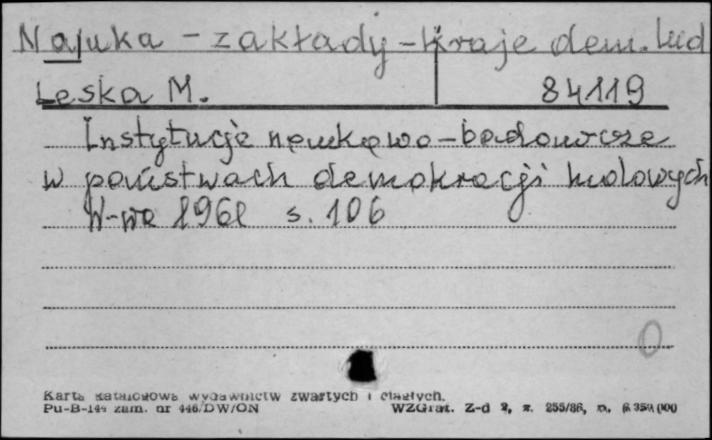 Nauka - zakłady - Kraje dem. lud
Leska M. 84119
Instytucje naukowo - badawcze
w państwach demokracji ludowych
W-wa 1961 s. 106
0
Karta katalogowa wydawnictw zwartych i ciągłych.
Pu-B-144 zam. nr 446/DW/ON WZGraf. Z-d 2, z. 255/86, n.